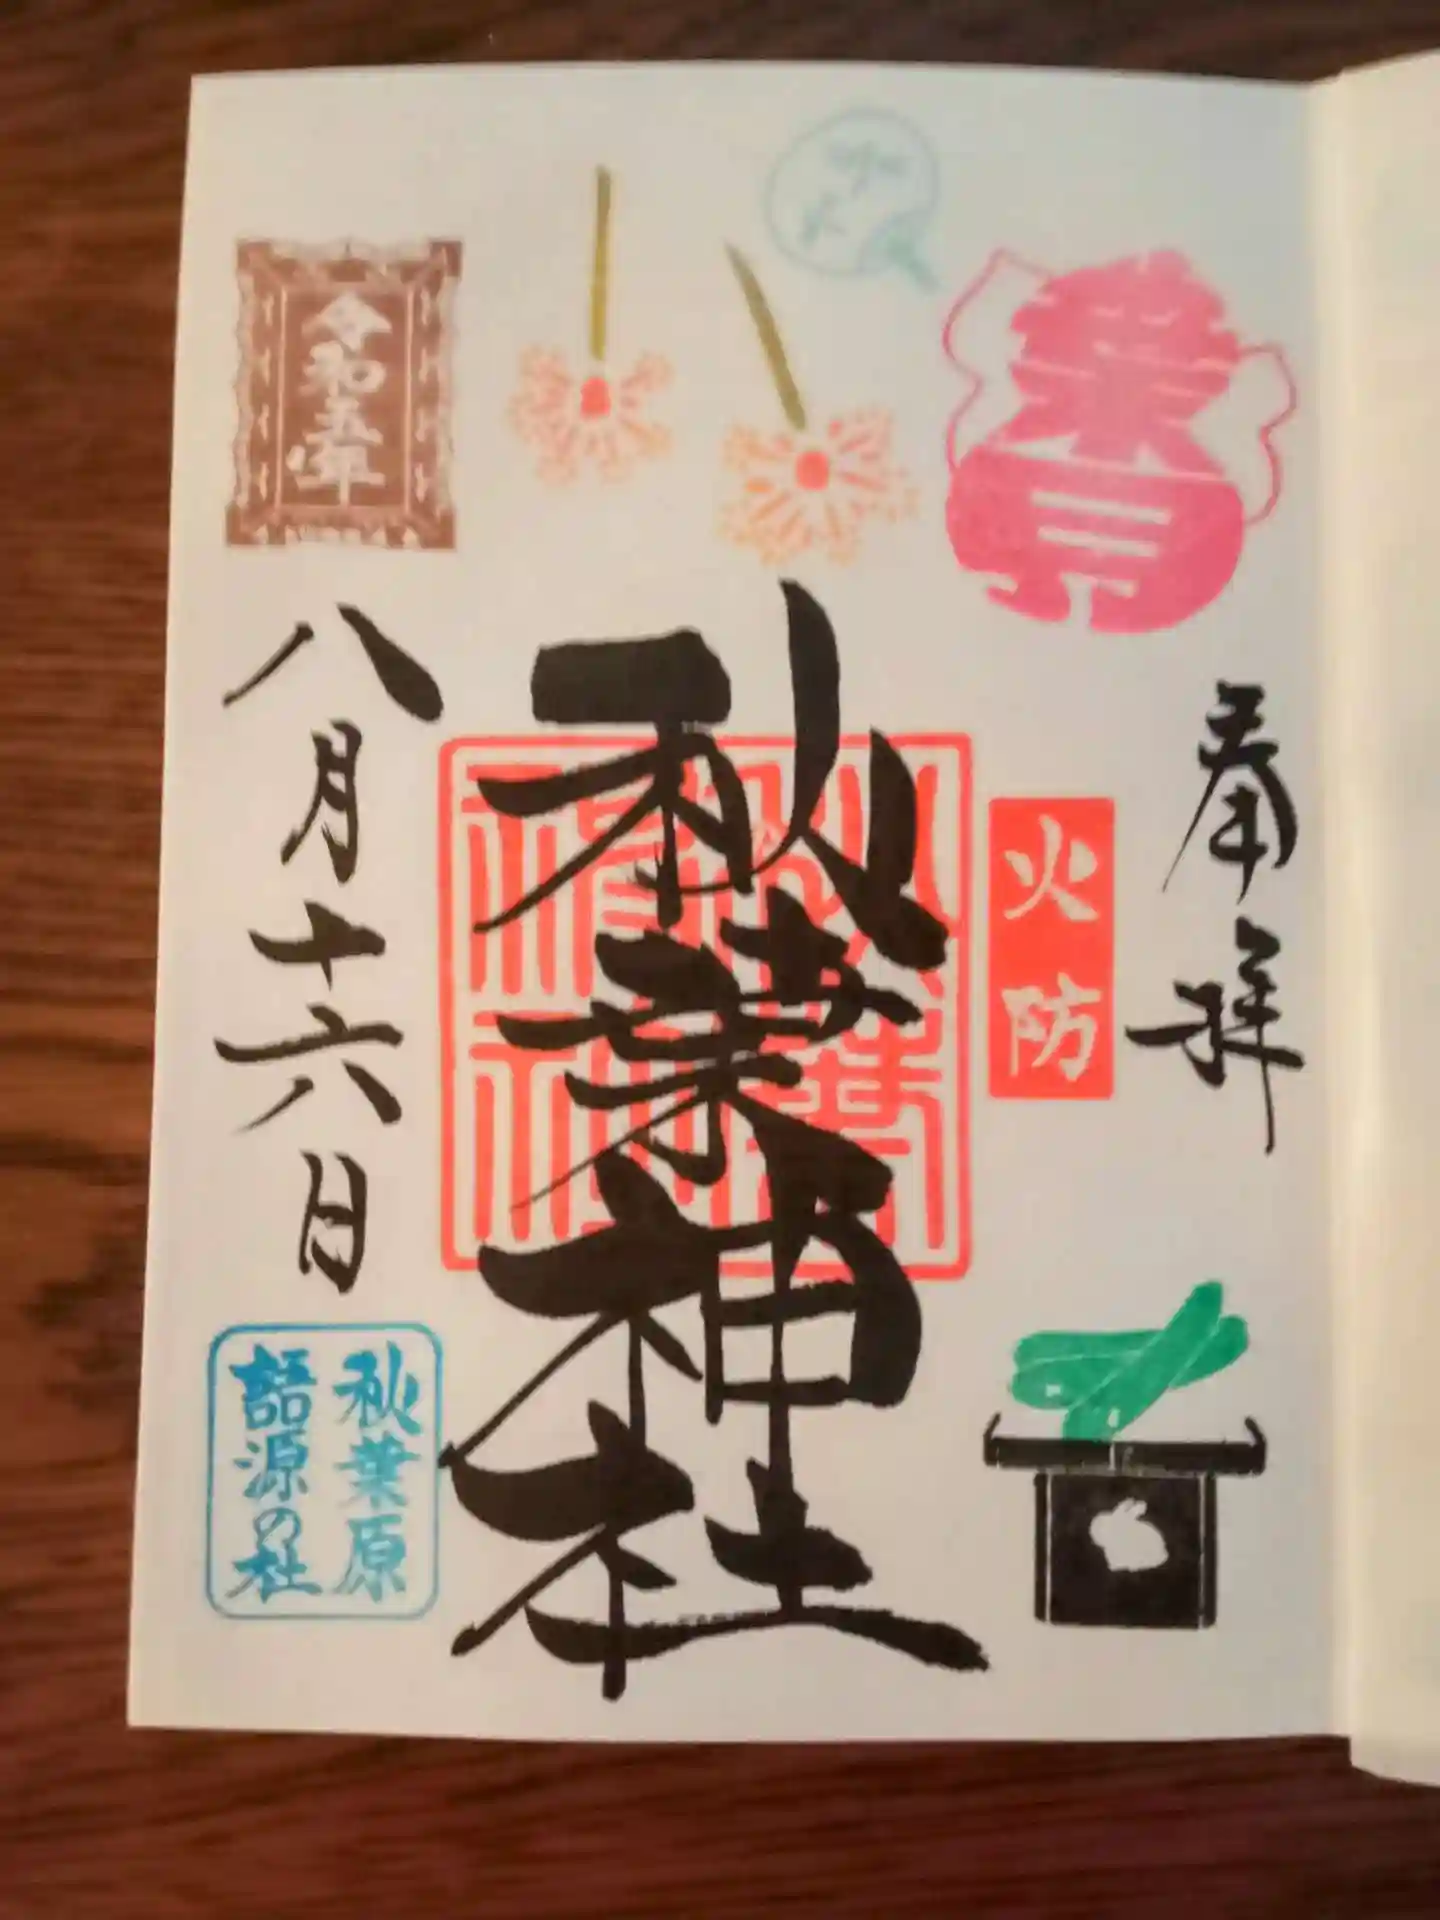 奉拝
葉月
火防
秋葉神社
秋葉神社
令和五年
八月十六日
秋葉原
語源の社